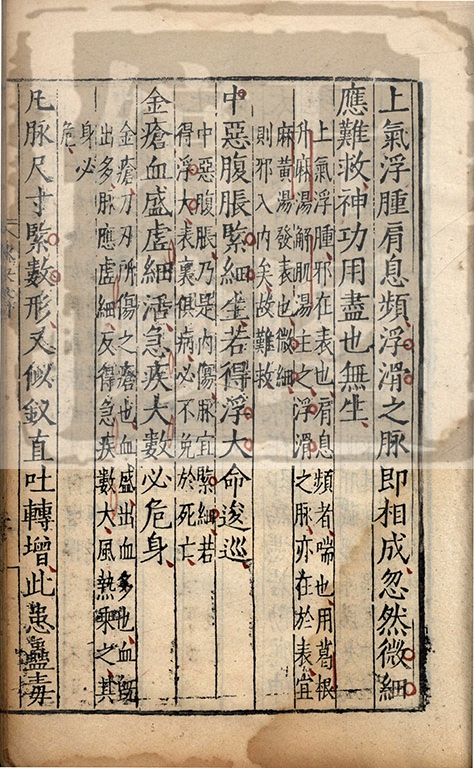 上氣浮腫肩息頻浮滑之脉即相成忽然微細
應難救神功用盡也無生
上氣浮腫邪在表也肩息頻者喘也用葛根
升麻湯解肌湯主之浮滑之脉亦在於表宜
麻黃湯發表也微細
則邪入内矣故難救
中惡腹脹緊細生若得浮大命逡巡
中惡腹脹乃是内傷脉宜緊細若
得浮大表裏俱病必不免於死亡
金瘡血盛虚細活急疾大數必危身
金瘡刀刃所傷之瘡也血盛出血多也血既
出多脉應虚細反得急疾數大風熱乘之其
身必
危
凡脉尺寸緊數形又似釵直吐轉增此患蠱毒